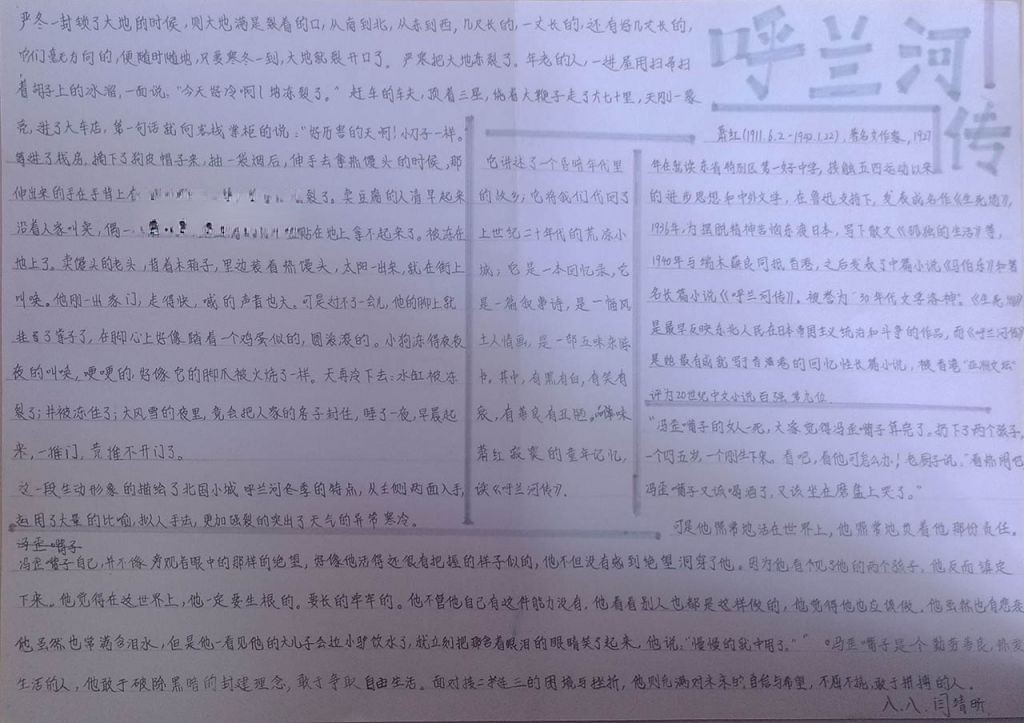 呼兰河传
严冬一封锁了大地的时候,则大地满是裂着的口,从南到北,从东到西,几尺长的,一丈长的,还有好几丈长的,
它们毫无方向的,便随时随地,只要寒冬一到,大地就裂开口了。严寒把大地冻裂了。年老的人,一进屋用扫帚扫
着胡子上的冰溜,一面说:“今天好冷啊!地冻裂了。”赶车的车夫,顶着三星,绕着大鞭子走了六七十里,天刚一蒙
亮,进了大车店,第一句话就向客栈掌柜的说:“好厉害的天啊!小刀子一样。
等进了栈房,摘下了狗皮帽子来,抽一袋烟后,伸手去拿热馒头的时候,那
伸出来的手在手背上有 裂了。卖豆腐的人清早起来
沿着人家叫卖,偶一 贴在地上拿不起来了。被冻在
地上了。卖馒头的老头,背着木箱子,里边装着热馒头,太阳一出来,就在街上
叫唤。他刚一出家门,走得快,喊的声音也大。可是过不了一会儿,他的脚上就
挂了掌子了,在脚心上好像踏着一个鸡蛋似的,圆滚滚的。小狗冻得夜夜
夜的叫唤,哽哽的,好像它的脚爪被火烧了一样。天再冷下去:水缸被冻
裂了;井被冻住了;大风雪的夜里,竟会把人家的房子封住,睡了一夜,早晨起
来,一推门,竟推不开门了。
这一段生动形象的描绘了北国小城呼兰河冬季的特点,从正侧两面入手,
运用了大量的比喻,拟人手法,更加强烈的突出了天气的异常寒冷。
它讲述了一个昏暗年代里
的故乡;它将我们代回了
上世纪二十年代的荒凉小
城;它是一本回忆录,它
是一篇叙事诗,是一幅风
土人情画,是一部五味杂陈
书,其中,有黑有白,有笑有
哀,有善良有丑陋。品味
萧红寂寞的童年记忆,
读《呼兰河传》.
萧红(1911.6.2-1942.1.22),著名女作家,1927
年在就读东省特别区第一女子中学,接触五四运动以来
的进步思想和中外文学,在鲁迅支持下,发表成名作《生死场》,
1936年,为摆脱精神苦恼东渡日本,写下散文《孤独的生活》等,
1940年与端木蕻良同抵香港,之后发表了中篇小说《马伯乐》和著
名长篇小说《呼兰河传》。被誉为“30年代文学洛神”。《生死场》
是最早反映东北人民在日本帝国主义统治和斗争的作品,而《呼兰河传》
是她最有成就写于香港的回忆性长篇小说,被香港“亚洲文坛”
评为20世纪中文小说百强第九位.
“冯歪嘴子的女人一死,大家觉得冯歪嘴子算完了。扔下了两个孩子,
一个四五岁,一个刚生下来。看吧,看他可怎么办!老厨子说:“看热闹吧,
冯歪嘴子又该喝酒了,又该坐在磨盘上哭了。”
可是他照常地活在世界上,他照常地负着他那份责任。
冯歪嘴子
冯歪嘴子自己,并不像旁观者眼中的那样的绝望,好像他活得还很有把握的样子似的,他不但没有感到绝望洞穿了他。因为他看见了他的两个孩子,他反而镇定
下来。他觉得在这世界上,他一定要生根的。要长的牢牢的。他不管他自己有这件能力没有,他看看别人也都是这样做的,他觉得他也应该做。他虽然也有悲哀
他虽然也常满含泪水,但是他一看见他的大儿子会拉小驴饮水了,就立刻把那含着眼泪的眼睛笑了起来,他说:“慢慢的就中用了。” 冯歪嘴子是个勤劳善良,热爱
生活的人,他敢于破除黑暗的封建理念,敢于争取自由生活。面对接二连三的困境与挫折,他则充满对未来的自信与希望,不屈不挠,敢于拼搏的人。
八.八.闫